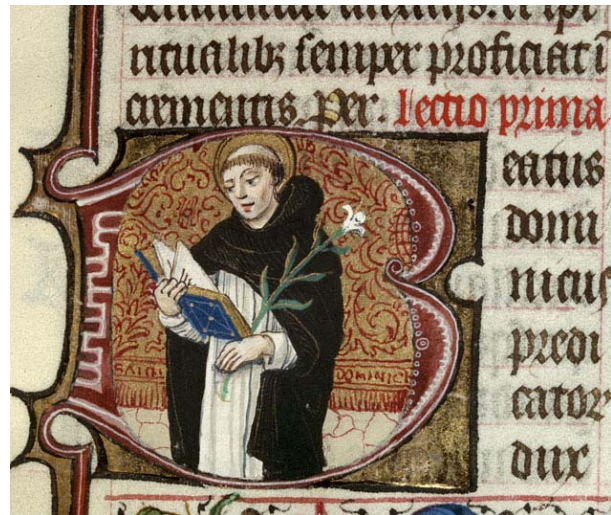 ritualibꝫ semper proficiat ī
crementis. Per. Lectio prima
Beatus
domi
nicus
predi
cator
dux
DOMINICI